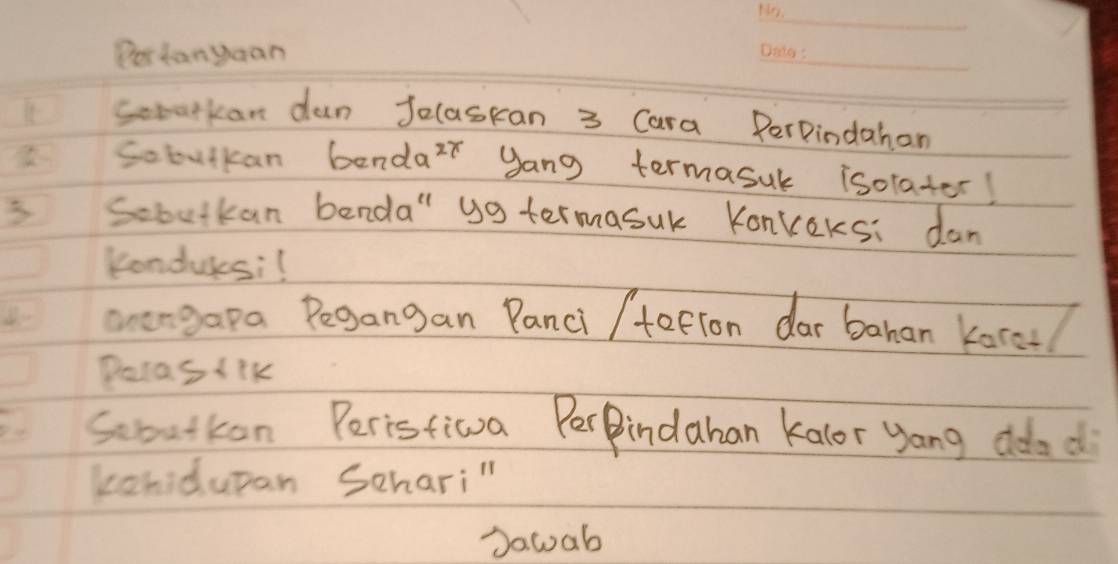 No.
Date:
Pertanyaan
1. Sebutkan dan Jelaskan 3 Cara Perpindahan
2. Sebutkan benda²x yang termasuk isolator!
3 Sebutkan benda" yg termasuk Konveksi dan
Konduksi!
4. mengapa Pegangan Panci /teflon dar bahan Karet/
Pelastik
5. Sebutkan Peristiwa Perpindahan Kalor yang ada di
kehidupan Sehari"
Jawab